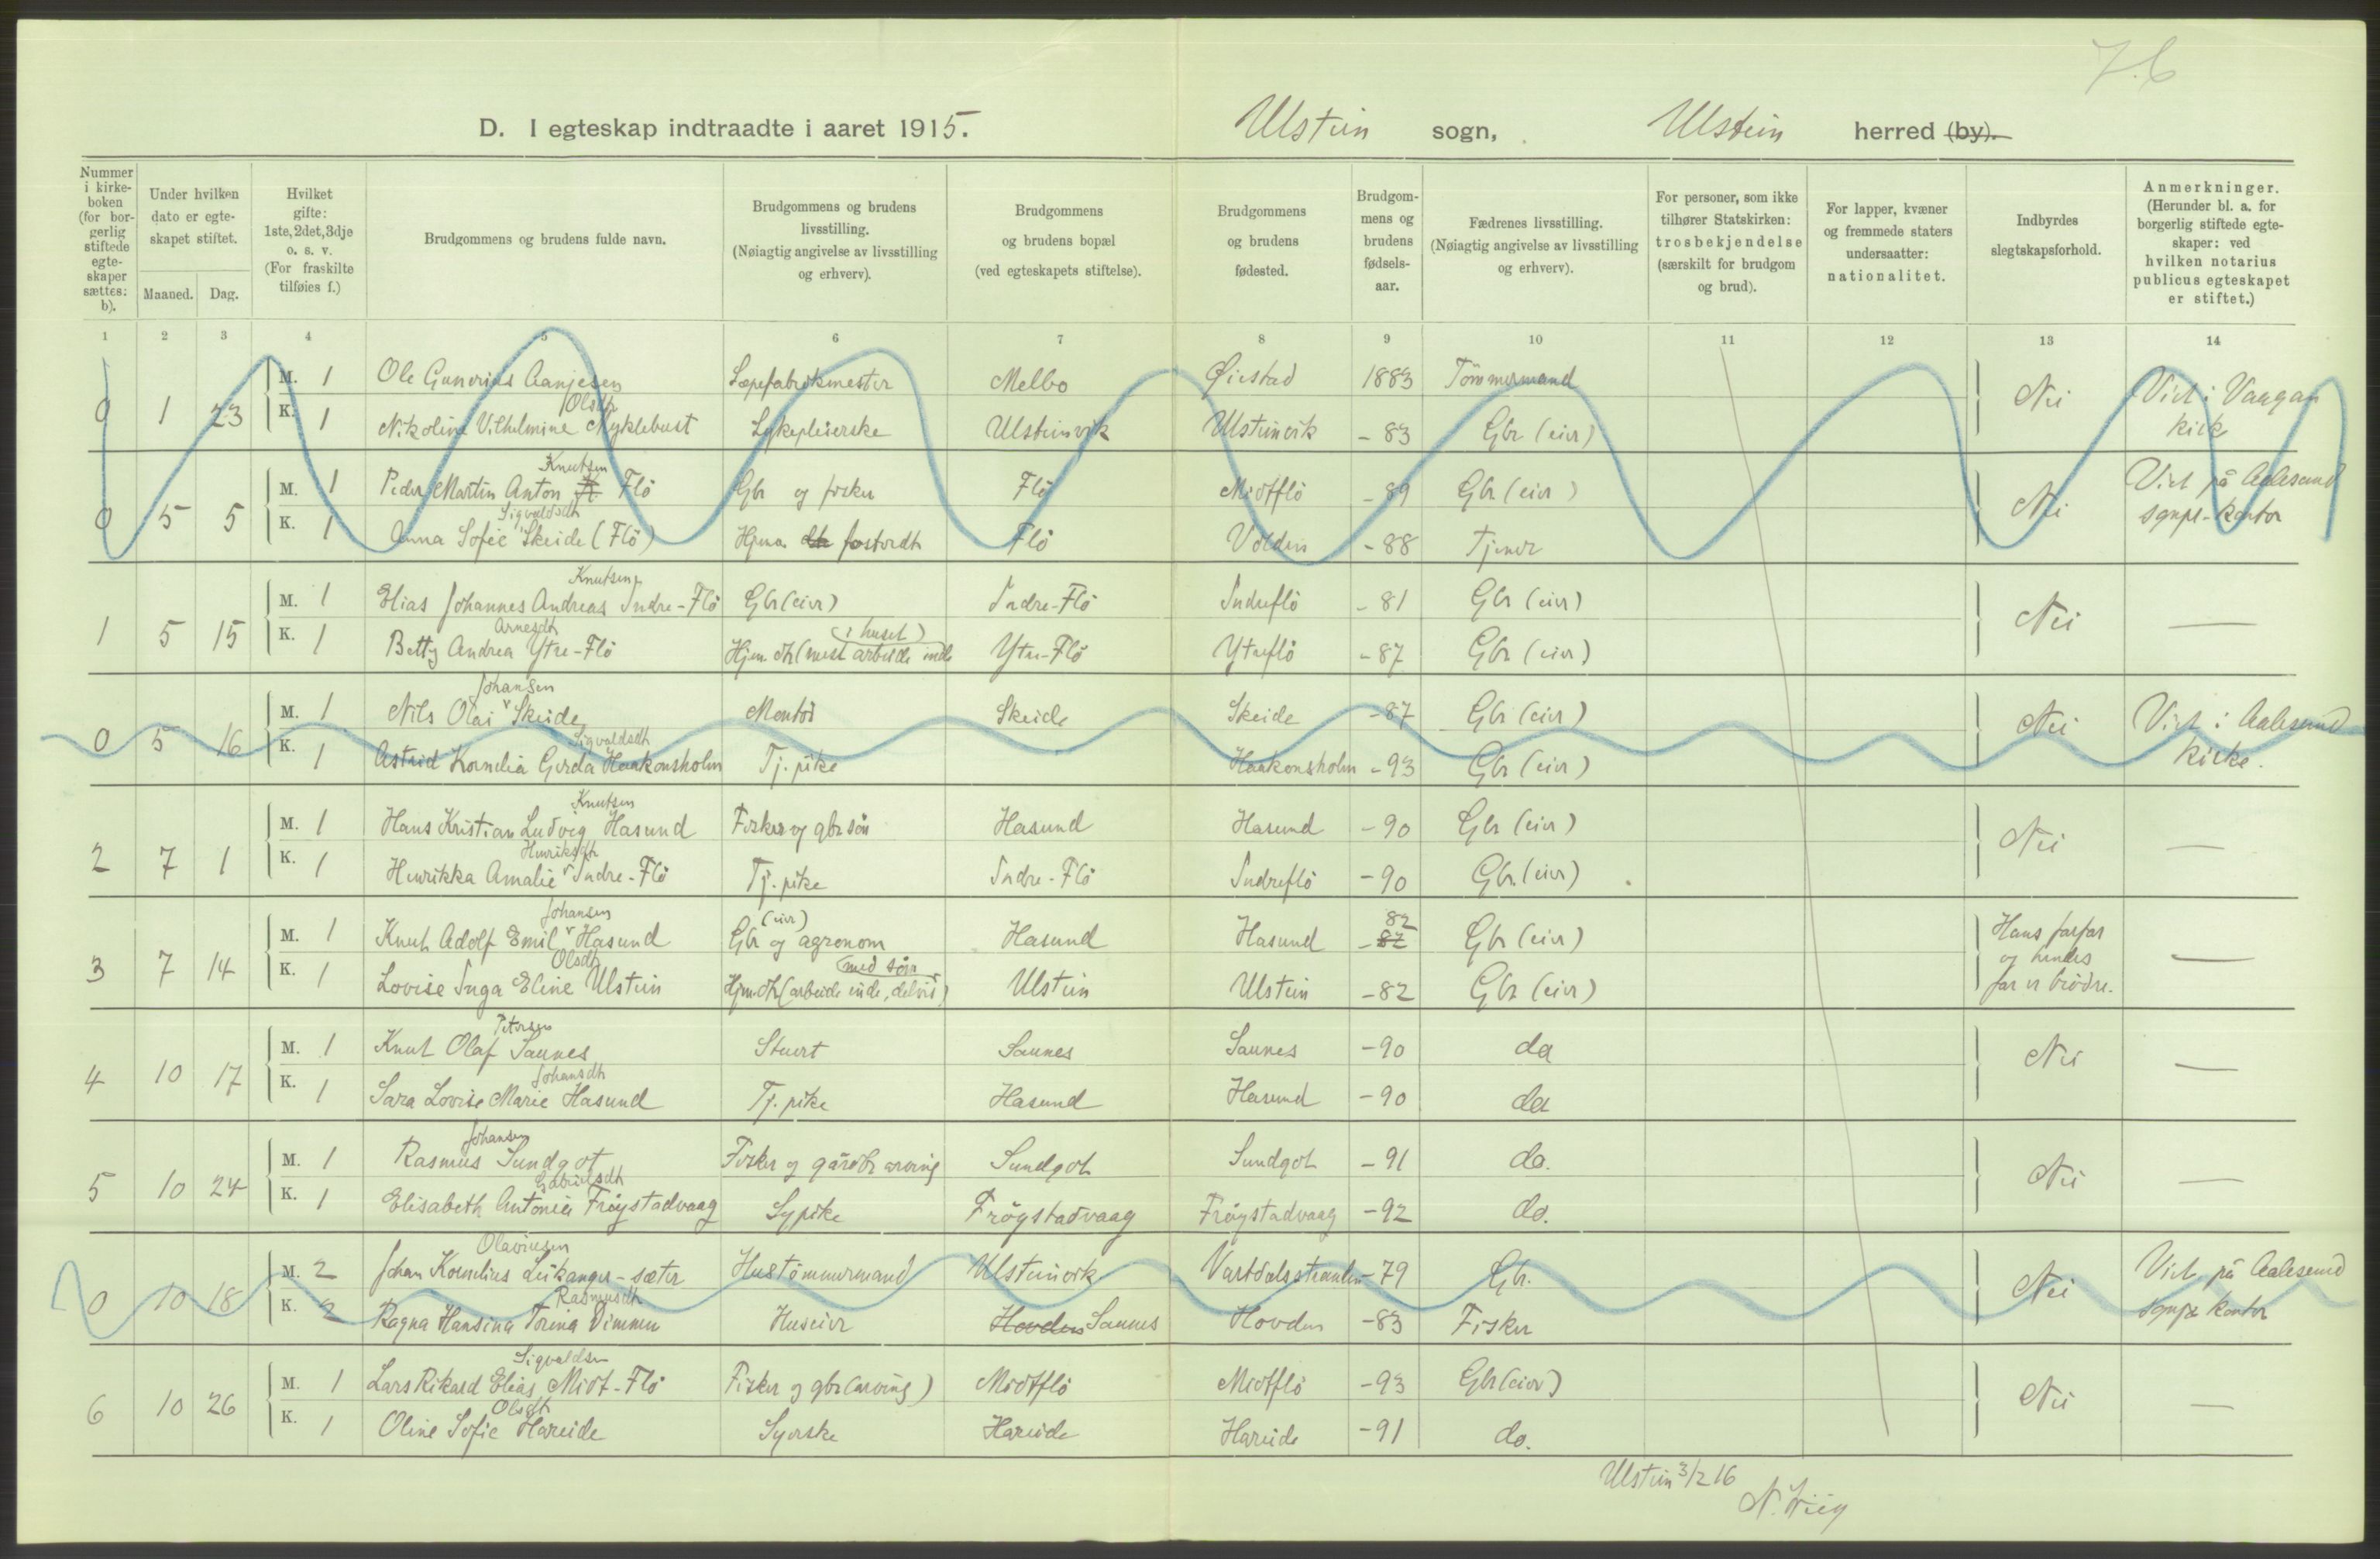 7.6
D. I egteskap indtraadte i aaret 1915. Ulstein sogn, Ulstein herred (by).
Nummer i kirkeboken (for borgerlig stiftede egteskaper sættes: b).
Under hvilken dato er egteskapet stiftet.
Maaned. Dag.
Hvilket gifte: 1ste, 2det, 3dje o. s. v. (For fraskilte tilføies f.)
Brudgommens og brudens fulde navn.
Brudgommens og brudens livsstilling. (Nøiagtig angivelse av livsstilling og erhverv).
Brudgommens og brudens bopæl (ved egteskapets stiftelse).
Brudgommens og brudens fødested.
Brudgommens og brudens fødselsaar.
Fædrenes livsstilling. (Nøiagtig angivelse av livsstilling og erhverv).
For personer, som ikke tilhører Statskirken: trosbekjendelse (særskilt for brudgom og brud).
For lapper, kvæner og fremmede staters undersaatter: nationalitet.
Indbyrdes slegtskapsforhold.
Anmerkninger. (Herunder bl. a. for borgerlig stiftede egteskaper: ved hvilken notarius publicus egteskapet er stiftet.)
1 2 3 4 5 6 7 8 9 10 11 12 13 14
0 1 23 M. 1 Ole Gunerius Aanjesen Sæpefabrikmester Melbo Øiestad 1883 Tømmermand Nei Viet i Vaagan kirk
K. 1 Nikoline Vilhelmine Olsdtr Myklebust Sykepleierske Ulsteinvik Ulsteinvik - 83 Gbr (eier)
0 5 5 M. 1 Peder Martin Anton Knutsen Flö Gbr og fisker Flö Midtflö - 89 Gbr (eier) Nei Viet på Aalesund sgnpr-kontor
K. 1 Anna Sofie Sigvaldsdt Skeide (Flö) Hjema fosterdt Flö Volden - 88 Tjener
1 5 15 M. 1 Elias Johannes Andreas Knutsen Indre-Flö Gbr (eier) Indre-Flö Indreflö - 81 Gbr (eier) Nei —
K. 1 Betty Andrea Arnesdt Ytre-Flö Hjem. dt (mest arbeide inde i huset) Ytre-Flö Ytreflö - 87 Gbr (eier)
0 5 16 M. 1 Nils Olai Johansen Skeide Montör Skeide Skeide - 87 Gbr (eier) Nei Viet i Aalesund kirke.
K. 1 Astrid Kornelia Gerda Sigvaldsdt Haakonsholm Tj. pike Haakonsholm - 93 Gbr (eier)
2 7 1 M. 1 Hans Kristian Ludvig Knutsen Hasund Fisker og gbr sön Hasund Hasund - 90 Gbr (eier) Nei —
K. 1 Henrikka Amalie Henriksdt Indre-Flö Tj. pike Indre-Flö Indreflö - 90 Gbr. (eier)
3 7 14 M. 1 Knut Adolf Emil Johansen Hasund Gbr (eier) og agronom Hasund Hasund - 87 82 Gbr (eier) Hans farfar og hendes far er brödre. —
K. 1 Lovise Inga Eline Olsdt Ulstein Hjem. dt (arbeide inde, delvis med söm) Ulstein Ulstein - 82 Gbr (eier)
4 10 17 M. 1 Knut Olaf Petersen Saunes Stuert Saunes Saunes - 90 do Nei —
K. 1 Sara Lovise Marie Johansdt Hasund Tj. pike Hasund Hasund - 90 do
5 10 24 M. 1 Rasmus Johansen Sundgot Fisker og gårdbr arving Sundgot Sundgot - 91 do. Nei —
K. 1 Elisabeth Antonia Gabrielsdt Fröystadvaag Sypike Fröystadvaag Fröystadvaag - 92 do.
0 10 18 M. 2 Johan Kornelius Olavinsen Leikanger-sæter Hustömmermand Ulsteinvik Vartdalsstranden - 79 Gbr. Nei Viet på Aalesund sgnpr kontor
K. 2 Ragna Hansina Torina Rasmusdt Dimmen Huseier Hovden Saunes Hovden - 83 Fisker
6 10 26 M. 1 Lars Rikard Elias Sigvaldsen Midt-Flö Fisker og gbr (arving) Midtflö Midtflö - 93 Gbr (eier) Nei —
K. 1 Oline Sofie Olsdt Hareide Syerske Hareide Hareide - 91 do.
Ulstein 3/2 16